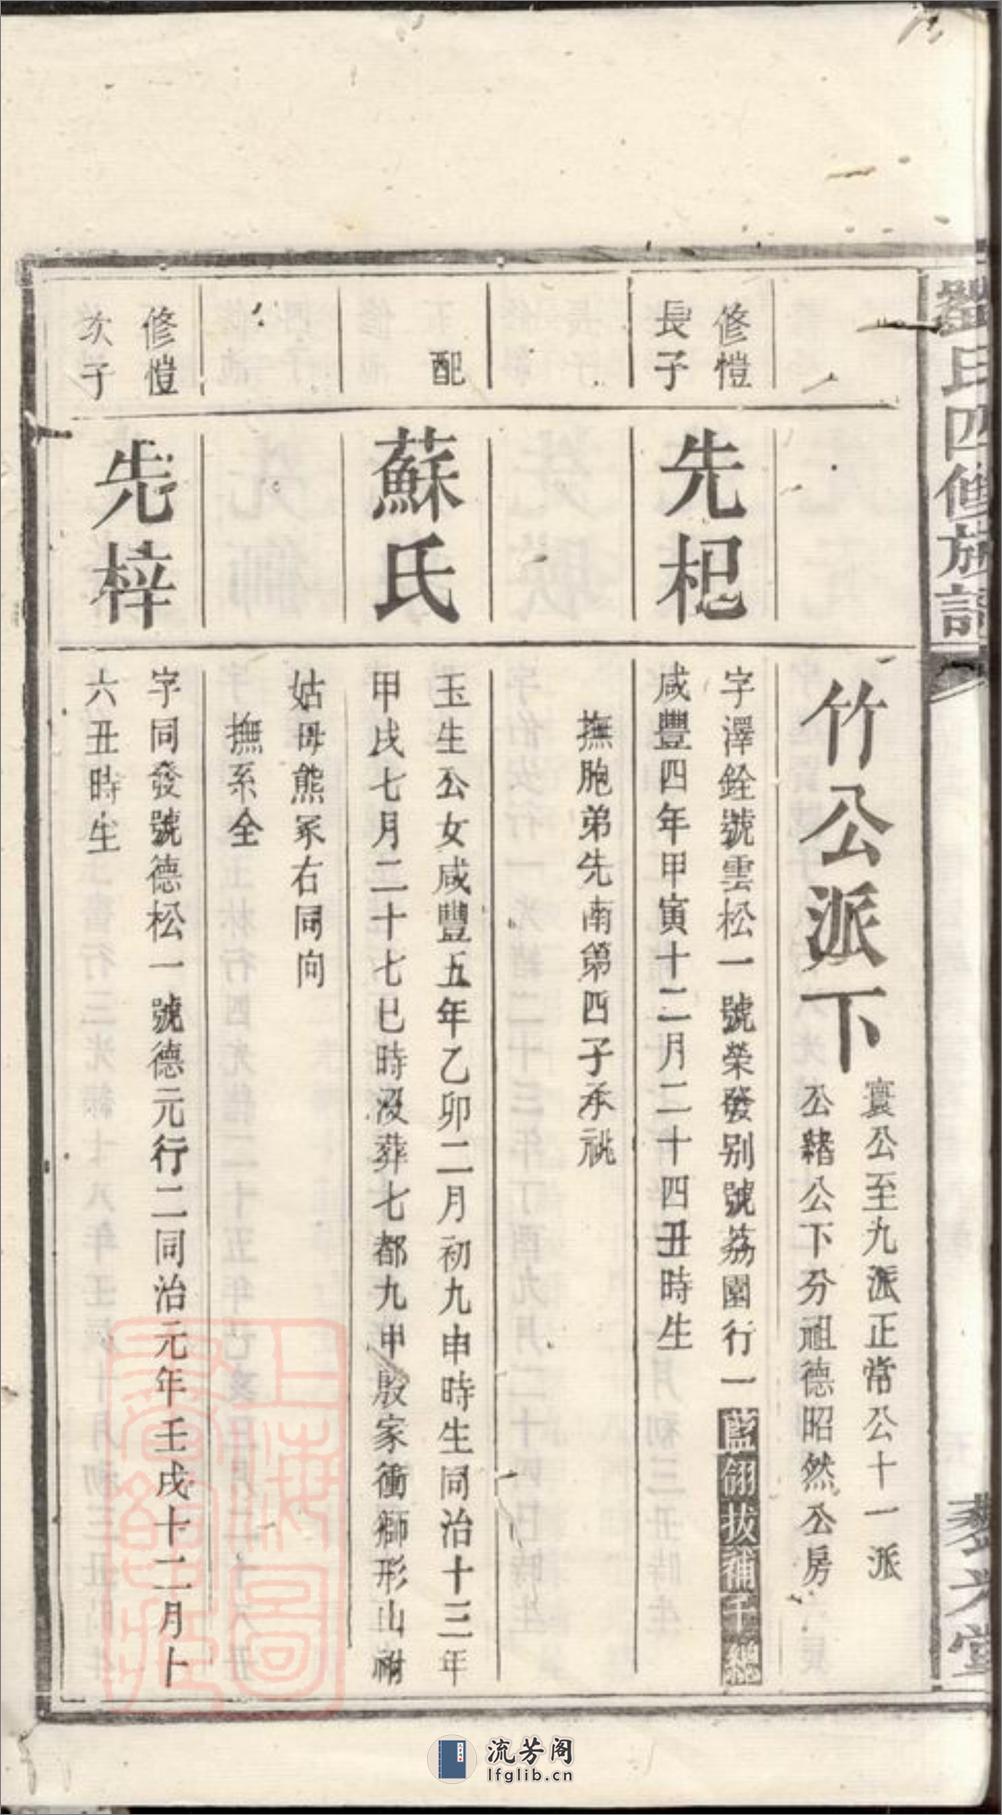 氏四修族譜
竹公派下
寰公至九派正常公十一派
公緒公下分祖德昭然公房
修愷
長子
先杞
字澤銓號雲松一號榮發別號荔園行一藍翎拔補千總
咸豐四年甲寅十二月二十四丑時生
撫胞弟先南第四子承祧
配
蘇氏
玉生公女咸豐五年乙卯二月初九申時生同治十三年
甲戌七月二十七巳時沒葬七都九甲殷家衝獅形山祔
姑母熊冢右同向
撫系全
修愷
次子
先梓
字同發號德松一號德元行二同治元年壬戌十二月十
六丑時生
上海圖書館藏
流芳阁
lfglib.cn